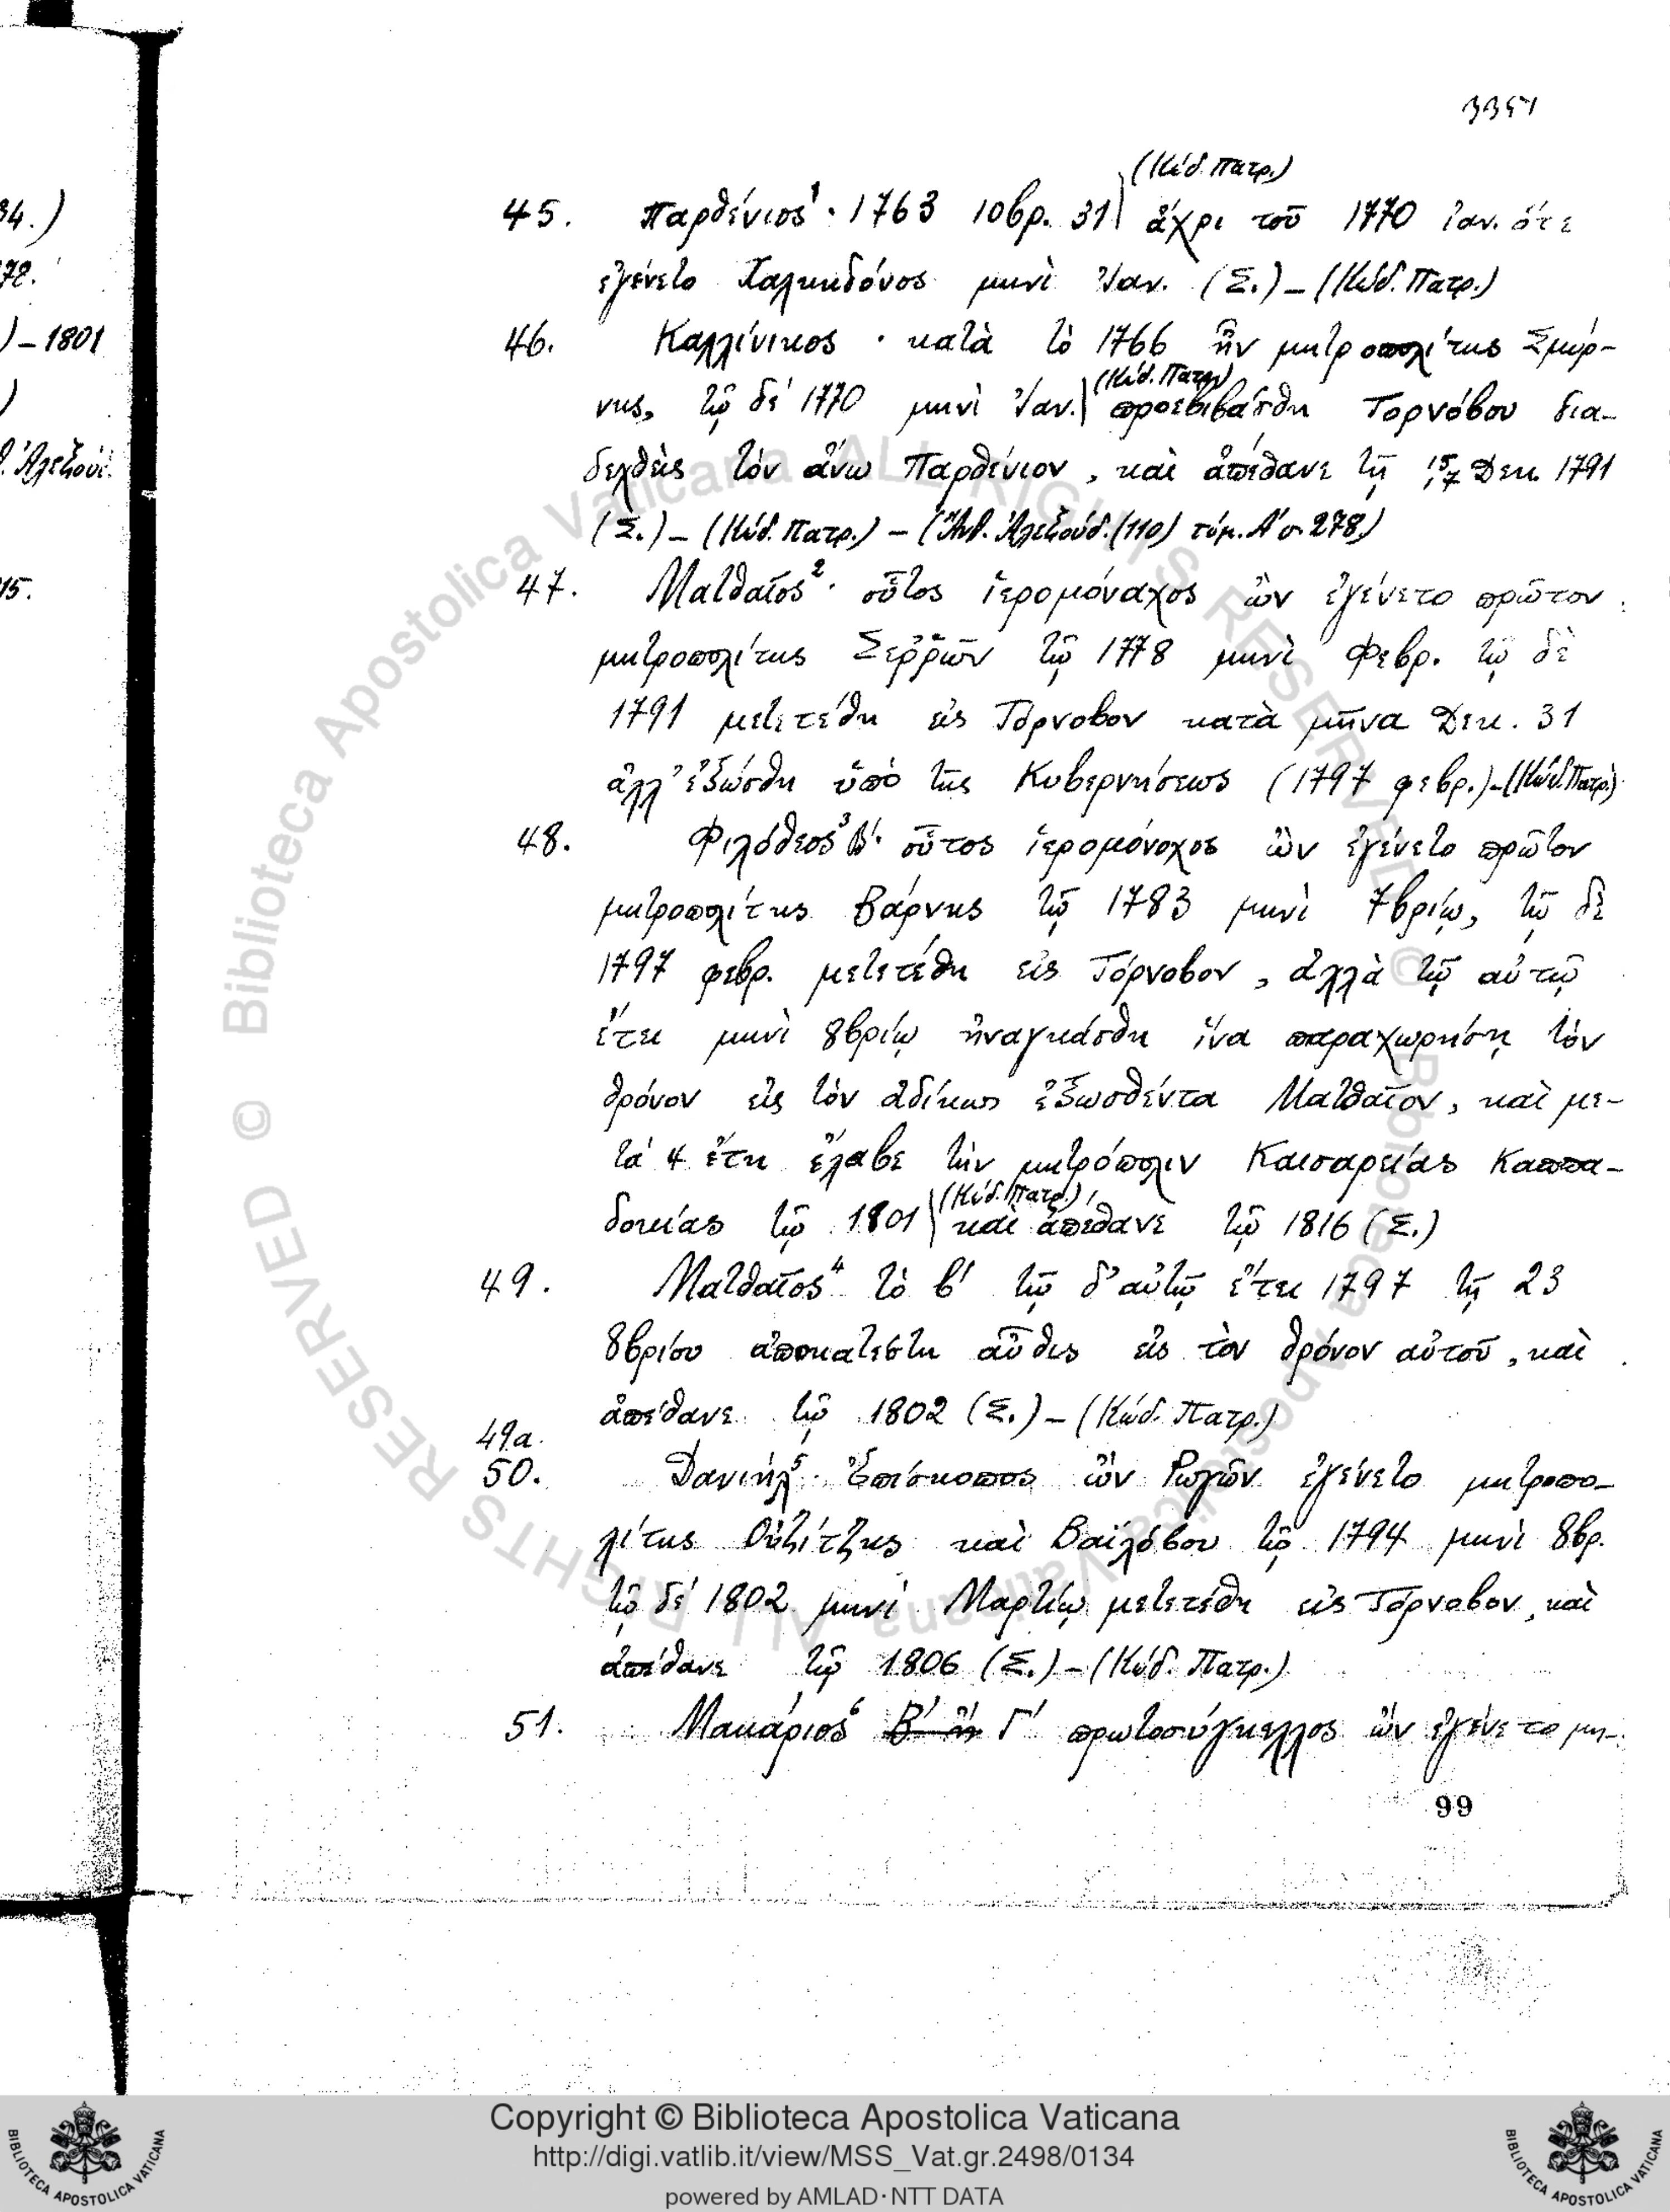 34.)
72.
) – 1801
)
Ἀλεξούδ.
15.
(Κώδ. Πατρ.)
45. Παρθένιος¹· 1763 10βρ. 31 ἄχρι τοῦ 1770 Ἰαν. ὅτε
ἐγένετο Χαλκηδόνος μηνὶ Ἰαν. (Σ.) – (Κώδ. Πατρ.)
46. Καλλίνικος · κατὰ τὸ 1766 ἦν μητροπολίτης Σμύρ-
(Κώδ. Πατρ.)
νης, τῷ δὲ 1770 μηνὶ Ἰαν. προεβιβάσθη Τορνόβου δια-
δεχθεὶς τὸν ἄνω Παρθένιον, καὶ ἀπέθανε τῇ Δεκ. 1791
(Σ.) – (Κώδ. Πατρ.) – (Ἄνθ. Ἀλεξούδ. (110) τόμ. Α' σ. 278)
47. Ματθαῖος²· οὗτος ἱερομόναχος ὢν ἐγένετο πρῶτον
μητροπολίτης Σερρῶν τῷ 1778 μηνὶ Φεβρ. τῷ δὲ
1791 μετετέθη εἰς Τόρνοβον κατὰ μῆνα Δεκ. 31
ἀλλ' ἐξώσθη ὑπὸ τῆς Κυβερνήσεως (1797 φεβρ.) – (Κώδ. Πατρ.)
48. Φιλόθεος³ Β'· οὗτος ἱερομόναχος ὢν ἐγένετο πρῶτον
μητροπολίτης Βάρνης τῷ 1783 μηνὶ 7βρίῳ, τῷ δὲ
1797 φεβρ. μετετέθη εἰς Τόρνοβον, ἀλλὰ τῷ αὐτῷ
ἔτει μηνὶ 8βρίῳ ἠναγκάσθη ἵνα παραχωρήσῃ τὸν
θρόνον εἰς τὸν ἀδίκως ἐξωσθέντα Ματθαῖον, καὶ με-
τὰ 4 ἔτη ἔλαβε τὴν μητρόπολιν Καισαρείας Καππα-
(Κώδ. Πατρ.)
δοκίας τῷ 1801 καὶ ἀπέθανε τῷ 1816 (Σ.)
49. Ματθαῖος⁴ τὸ β' τῷ δ' αὐτῷ ἔτει 1797 τῇ 23
8βρίου ἀποκατέστη αὖθις εἰς τὸν θρόνον αὐτοῦ, καὶ
ἀπέθανε τῷ 1802 (Σ.) – (Κώδ. Πατρ.)
49a.
50. Δανιήλ⁵· Ἐπίσκοπος ὢν Ρωγῶν ἐγένετο μητροπο-
λίτης Οὐζίτζης καὶ Βαϊλόβου τῷ 1794 μηνὶ 8βρ.
τῷ δὲ 1802 μηνὶ Μαρτίῳ μετετέθη εἰς Τόρνοβον, καὶ
ἀπέθανε τῷ 1806 (Σ.) – (Κώδ. Πατρ.)
51. Μακάριος⁶ Β' ἢ Γ' πρωτοσύγκελλος ὢν ἐγένετο μη-
99
© Biblioteca Apostolica Vaticana ALL RIGHTS RESERVED © Biblioteca Apostolica Vaticana ALL RIGHTS RESERVED
BIBLIOTECA APOSTOLICA VATICANA
Copyright © Biblioteca Apostolica Vaticana
http://digi.vatlib.it/view/MSS_Vat.gr.2498/0134
powered by AMLAD·NTT DATA
BIBLIOTECA APOSTOLICA VATICANA